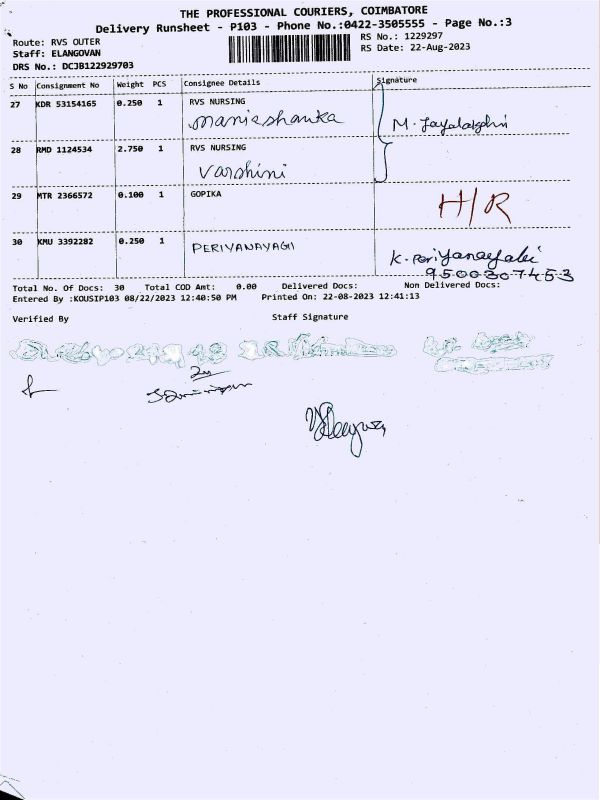 THE PROFESSIONAL COURIERS, COIMBATORE
Delivery Runsheet - P103 - Phone No.:0422-3505555 - Page No.:3
Route: RVS OUTER
Staff: ELANGOVAN
DRS No.: DCJB122929703
RS No.: 1229297
RS Date: 22-Aug-2023
S No Consignment No Weight PCS Consignee Details Signature
27 KDR 53154165 0.250 1 RVS NURSING
manieshanka
28 RMD 1124534 2.750 1 RVS NURSING
Varshini
29 MTR 2366572 0.100 1 GOPIKA H/R
30 KMU 3392282 0.250 1 PERIYANAYAGI
9500307453
Total No. Of Docs: 30 Total COD Amt: 0.00 Delivered Docs: Non Delivered Docs:
Entered By :KOUSIP103 08/22/2023 12:40:50 PM Printed On: 22-08-2023 12:41:13
Verified By Staff Signature